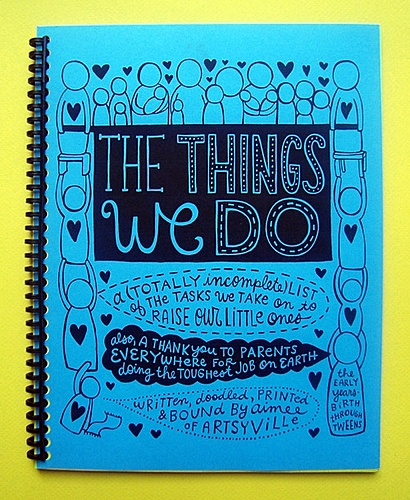 THE THINGS
We DO
a (TOTALLY incomplete) LIST
OF THE TASKS WE TAKE ON to
RAISE OUR LiTTLe ones
also, A THANK YOU TO PARENTS
EVERYWHERE FOR
doing the TOUGHesT JOB ON EARTH
WRiTTeN, doodled, PRINTED
& BOUND BY aimee
OF ARTSYViLLe
the
EARLY
years:
BiRTH
THROUGH
TWEENS